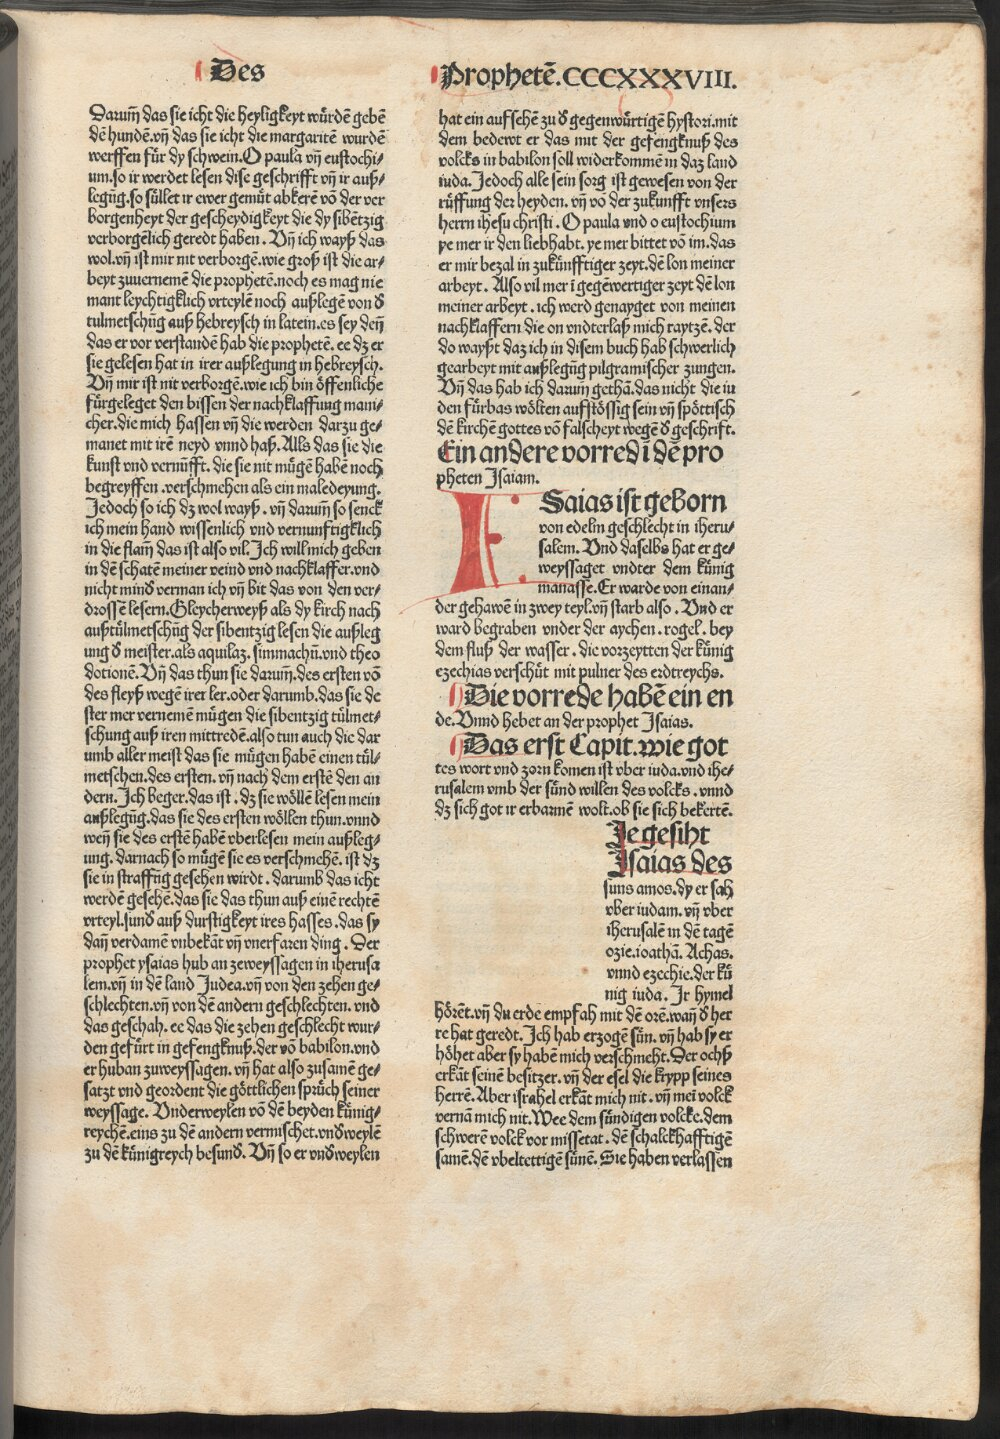 Des
Prophetē.CCCXXXVIII.
Darum̄ das sie icht die heyligkeyt wu̇rdē gebē
dē hundē.vn̄ das sie icht die margaritē wurdē
werffen fu̇r dy schwein.O paula vn̄ eustochi⸗
um.so ir werdet lesen dise geschrifft vn̄ ir auß⸗
legūg.so su̇llet ir ewer gemu̇t abkerē vō der ver
borgenheyt der gescheydigkeyt die dy sibētzig
verborgēlich geredt haben. Vn̄ ich wayß das
wol.vn̄ ist mir nit verborgē.wie groß ist die ar⸗
beyt zuuernemē die prophetē.noch es mag nie
mant leychtigklich vrteylē noch außlegē von d̄
tulmetschūg auß hebreysch in latein.es sey deñ
das er vor verstandē hab die prophetē. ee dz er
sie gelesen hat in irer außlegung in hebreysch.
Vn̄ mir ist nit verborgē.wie ich bin o̎ffenliche
fu̎rgeleget den bissen der nachklaffung mani⸗
cher.die mich hassen vn̄ die werden darzu ge⸗
manet mit irē neyd vnnd haß. Alls das sie die
kunst vnd vernu̎fft. die sie nit mu̎gē habē noch
begreyffen .verschmehen als ein maledeyung.
Jedoch so ich dz wol wayß . vn̄ darum̄ so senck
ich mein hand wissenlich vnd vernunftigklich
in die flam̄ das ist also vil. Ich will mich geben
in dē schatē meiner veind vnd nachklaffer.vnd
nicht mind̄ verman ich vn̄ bit das von den ver⸗
drossē lesern.Gleycherweyß als dy kirch nach
außtu̎lmetschūg der sibentzig lesen die außleg
ung d̄ meister.als aquilaz. simmachū.vnd theo
dotionē. Vn̄ das thun sie darum̄.des ersten vō
des fleyß wegē irer ler.oder darumb.das sie de
ster mer vernemē mu̎gen die sibentzig tu̎lmet⸗
schung auß iren mittredē.also tun auch die dar
umb aller meist das sie mu̎gen habē einen tu̎l⸗
metschen.des ersten. vn̄ nach dem erstē den an
dern. Ich beger.das ist . dz sie wo̎llē lesen mein
außlegūg.das sie des ersten wo̎llen thun.vnnd
wen̄ sie des erstē habē vberlesen mein außleg⸗
ung. darnach so mu̎gē sie es verschmehē. ist dz
sie in straffūg gesehen wirdt . darumb das icht
werdē gesehē.das sie das thun auß einē rechtē
vrteyl.sund̄ auß durstigkeyt ires hasses .das sy
dan̄ verdamē vnbekāt vn̄ vnerfaren ding . Der
prophet ysaias hub an zeweyssagen in iherusa
lem.vn̄ in dē land Judea.vn̄ von den zehen ge⸗
schlechten.vn̄ von dē andern geschlechten. vnd
das geschah. ee das die zehen geschlecht wur⸗
den gefu̎rt in gefengknuß.der vō babilon.vnd
er huban zuweyssagen. vn̄ hat also zusamē ge⸗
satzt vnd geordent die go̎ttlichen spru̎ch seiner
weyssage. Vnderweylen vō dē beyden ku̎nig⸗
reychē.eins zu dē andern vermischet.vnd̄weylē
zu dē ku̎nigreych besund̄. Vn̄ so er vnd̄weylen
hat ein aufsehē zu d̄ gegenwu̎rtigē hystori.mit
dem bedewt er das mit der gefengknuß des
volcks in babilon soll widerkommē in daz land
iuda. Jedoch alle sein sorg ist gewesen von der
ru̎ffung der heyden. vn̄ vō der zukunfft vnsers
herrn ihesu christi . O paula vnd o eustochium
ye mer ir den liebhabt. ye mer bittet vō im.das
er mir bezal in zuku̎nfftiger zeyt.dē lon meiner
arbeyt . Also vil mer ī gegēwertiger zeyt dē lon
meiner arbeyt . ich werd genayget von meinen
nachklaffern die on vndterlaß mich raytzē. der
do wayßt daz ich in disem buch hab schwerlich
gearbeyt mit außlegūg pilgramischer zungen.
Vn̄ das hab ich darum̄ gethā.das nicht die iu
den fu̎rbas wo̎lten aufsto̎ssig sein vn̄ spo̎ttisch
dē kirchē gottes vō falscheyt wegē d̄ geschrift.
Ein andere vorred ī dē pro
pheten Isaiam.
ISaias ist geborn
von edelm geschlecht in iheru⸗
salem. Vnd daselbs hat er ge⸗
weyssaget vndter dem ku̎nig
manasse.Er warde von einan⸗
der gehawē in zwey teyl.vn̄ starb also . Vnd er
ward begraben vnder der aychen . rogel . bey
dem fluß der wasser . die vorzeytten der ku̎nig
ezechias verschu̎t mit puluer des erdtreychs.
Die vorrede habē ein en
de.Vnnd hebet an der prophet Isaias.
Das erst Capit.wie got
tes wort vnd zorn komen ist vber iuda.vnd ihe⸗
rusalem vmb der su̎nd willen des volcks . vnnd
dz sich got ir erbarmē wolt.ob sie sich bekertē.
Je gesiht
Isaias des
suns amos.dy er sah
vber iudam. vn̄ vber
iherusalē in dē tagē
ozie.ioathā. Achas.
vnnd ezechie.der ku̎
nig iuda. Ir hymel
ho̎ret.vn̄ du erde empfah mit dē orē.wan̄ d̄ her
re hat geredt. Ich hab erzogē su̎n. vn̄ hab sy er
ho̎het aber sy habē mich verschmeht.Der ochß
erkāt seinē besitzer. vn̄ der esel die krypp seines
herrē.Aber israhel erkāt mich nit . vn̄ mei volck
vernā mich nit.Wee dem su̎ndigen volcke.dem
schwerē volck vor missetat . dē schalckhafftigē
samē.dē vbeltettigē su̎nē. Sie haben verlassen